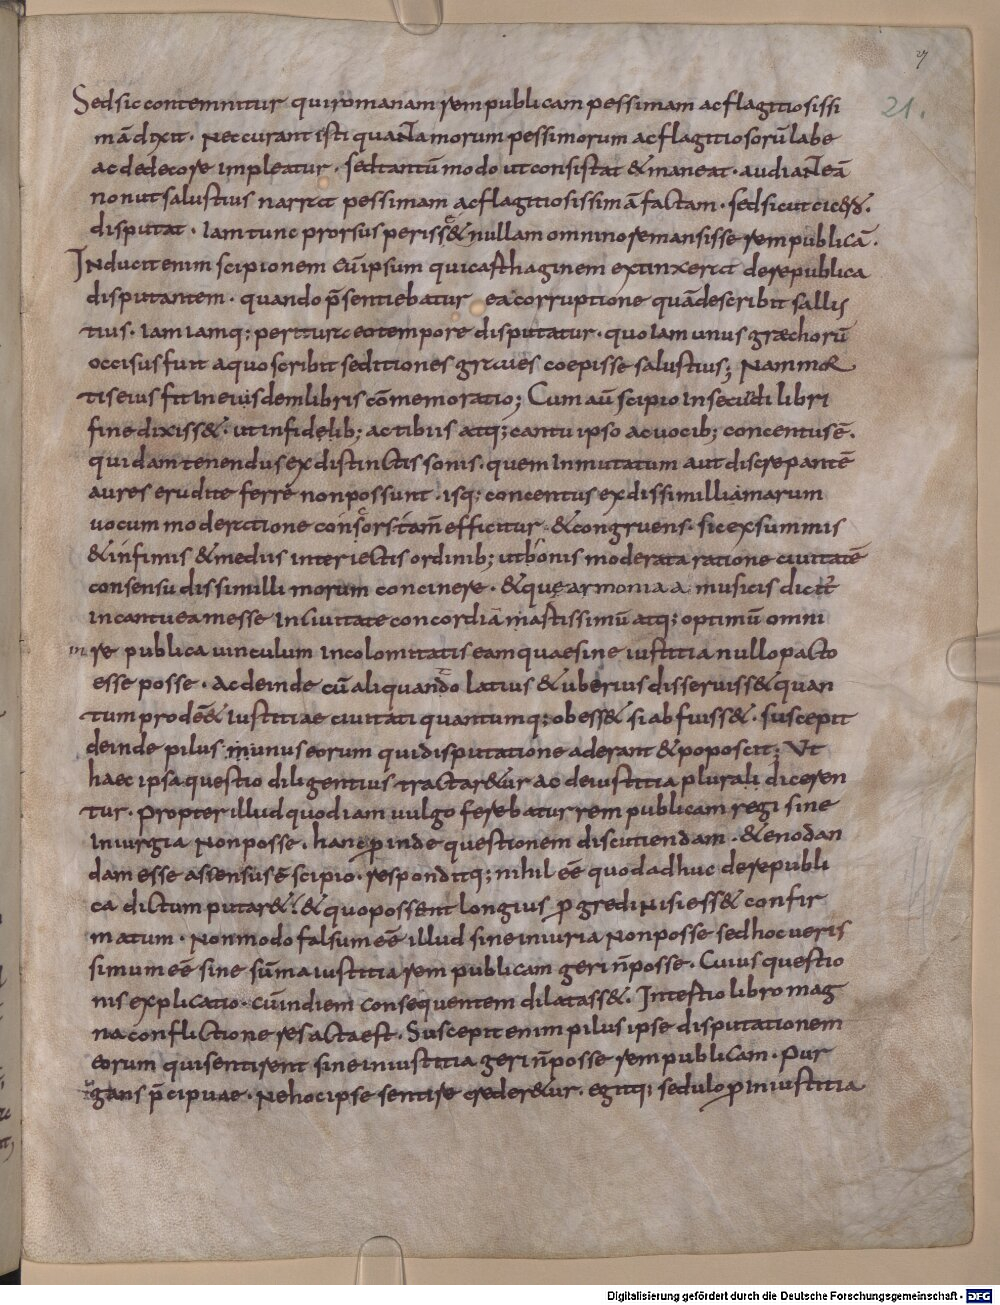 27
21.
Sed sic contemnitur qui romanam rem publicam pessimam ac flagitiosissi
mā dixit · Nec curant isti quanta morum pessimorum ac flagitiosorū labe
ac dedecore impleatur · sed tantū modo ut consistat & maneat · audiant eā
non ut salustius narrat pessimam ac flagitiosissimā factam · sed sicut cicero
disputat · iam tunc prorsus periss& nullam omnino remansisse rem publicā ·
Inducit enim scipionem eūipsum qui carthaginem extinxerat de republica
disputantem · quando p̄sentiebatur ea corruptione quā describit sallis
tius · iam iamq; peritura eo tempore disputatur · quo iam unus gracchorū
occisus fuit a quo scribit seditiones graues coepisse salustius; Nam mor
tis eius fit in eiusdem libris cōmemoratio; Cum aū scipio in secūdi libri
fine dixiss& · ut in fidelib; ac tibiis atq; cantu ipso ac uocib; concentus ē ·
quidam tenendus ex distinctis sonis · quem inmutatum aut discrepantē
aures erudite ferre non possunt · isq; concentus ex dissimilliamarum
uocum moderatione consors tam̄ efficitur · & congruens · sic ex summis
& infimis & mediis inter iectis ordinib; ut bonis moderata ratione ciuitatē
consensu dissimilli morum concinere · & que armonia a musicis dicit̄
in cantu eam esse in ciuitate concordiā mastissimū atq; optimū omni
in re publica uinculum incolomitatis eamquae sine iustitia nullo pacto
esse posse · Ac deinde cū aliquando latius & uberius disseruiss& quan
tum prodēē& iustitiae ciuitati quantumq; obess& si abfuiss& · suscepit
deinde pilus munus eorum qui disputatione aderant & poposcit; Ut
haec ipsa questio diligentius tractar&ur ac de iustitia plurali diceren
tur · propter illud quod iam uulgo ferebatur rem publicam regi sine
iniurgia Non posse · hanc proinde questionem discutiendam · & enodan
dam esse assensus ē scipio · responditq; nihil ēē quod adhuc de republi
ca dictum putar& · & quo possent longius progredi Nisi ess& confir
matum · Non modo falsum ēē illud sine iniuria Non posse sed hoc ueris
simum ēē sine sūma iustitia rem publicam geri n̄ posse · Cuius questio
nis explicatio · cū in diem consequentem dilatass& · In tertio libro mag
na conflictione res acta est · Suscepit enim pilus ipse disputationem
eorum qui sentirent sine iniustitia geri n̄ posse rem publicam · Pur
gans p̄cipuae · Ne hoc ipse sentire creder&ur · egitq; sedulo pro iniustitia
Digitalisierung gefördert durch die Deutsche Forschungsgemeinschaft - DFG